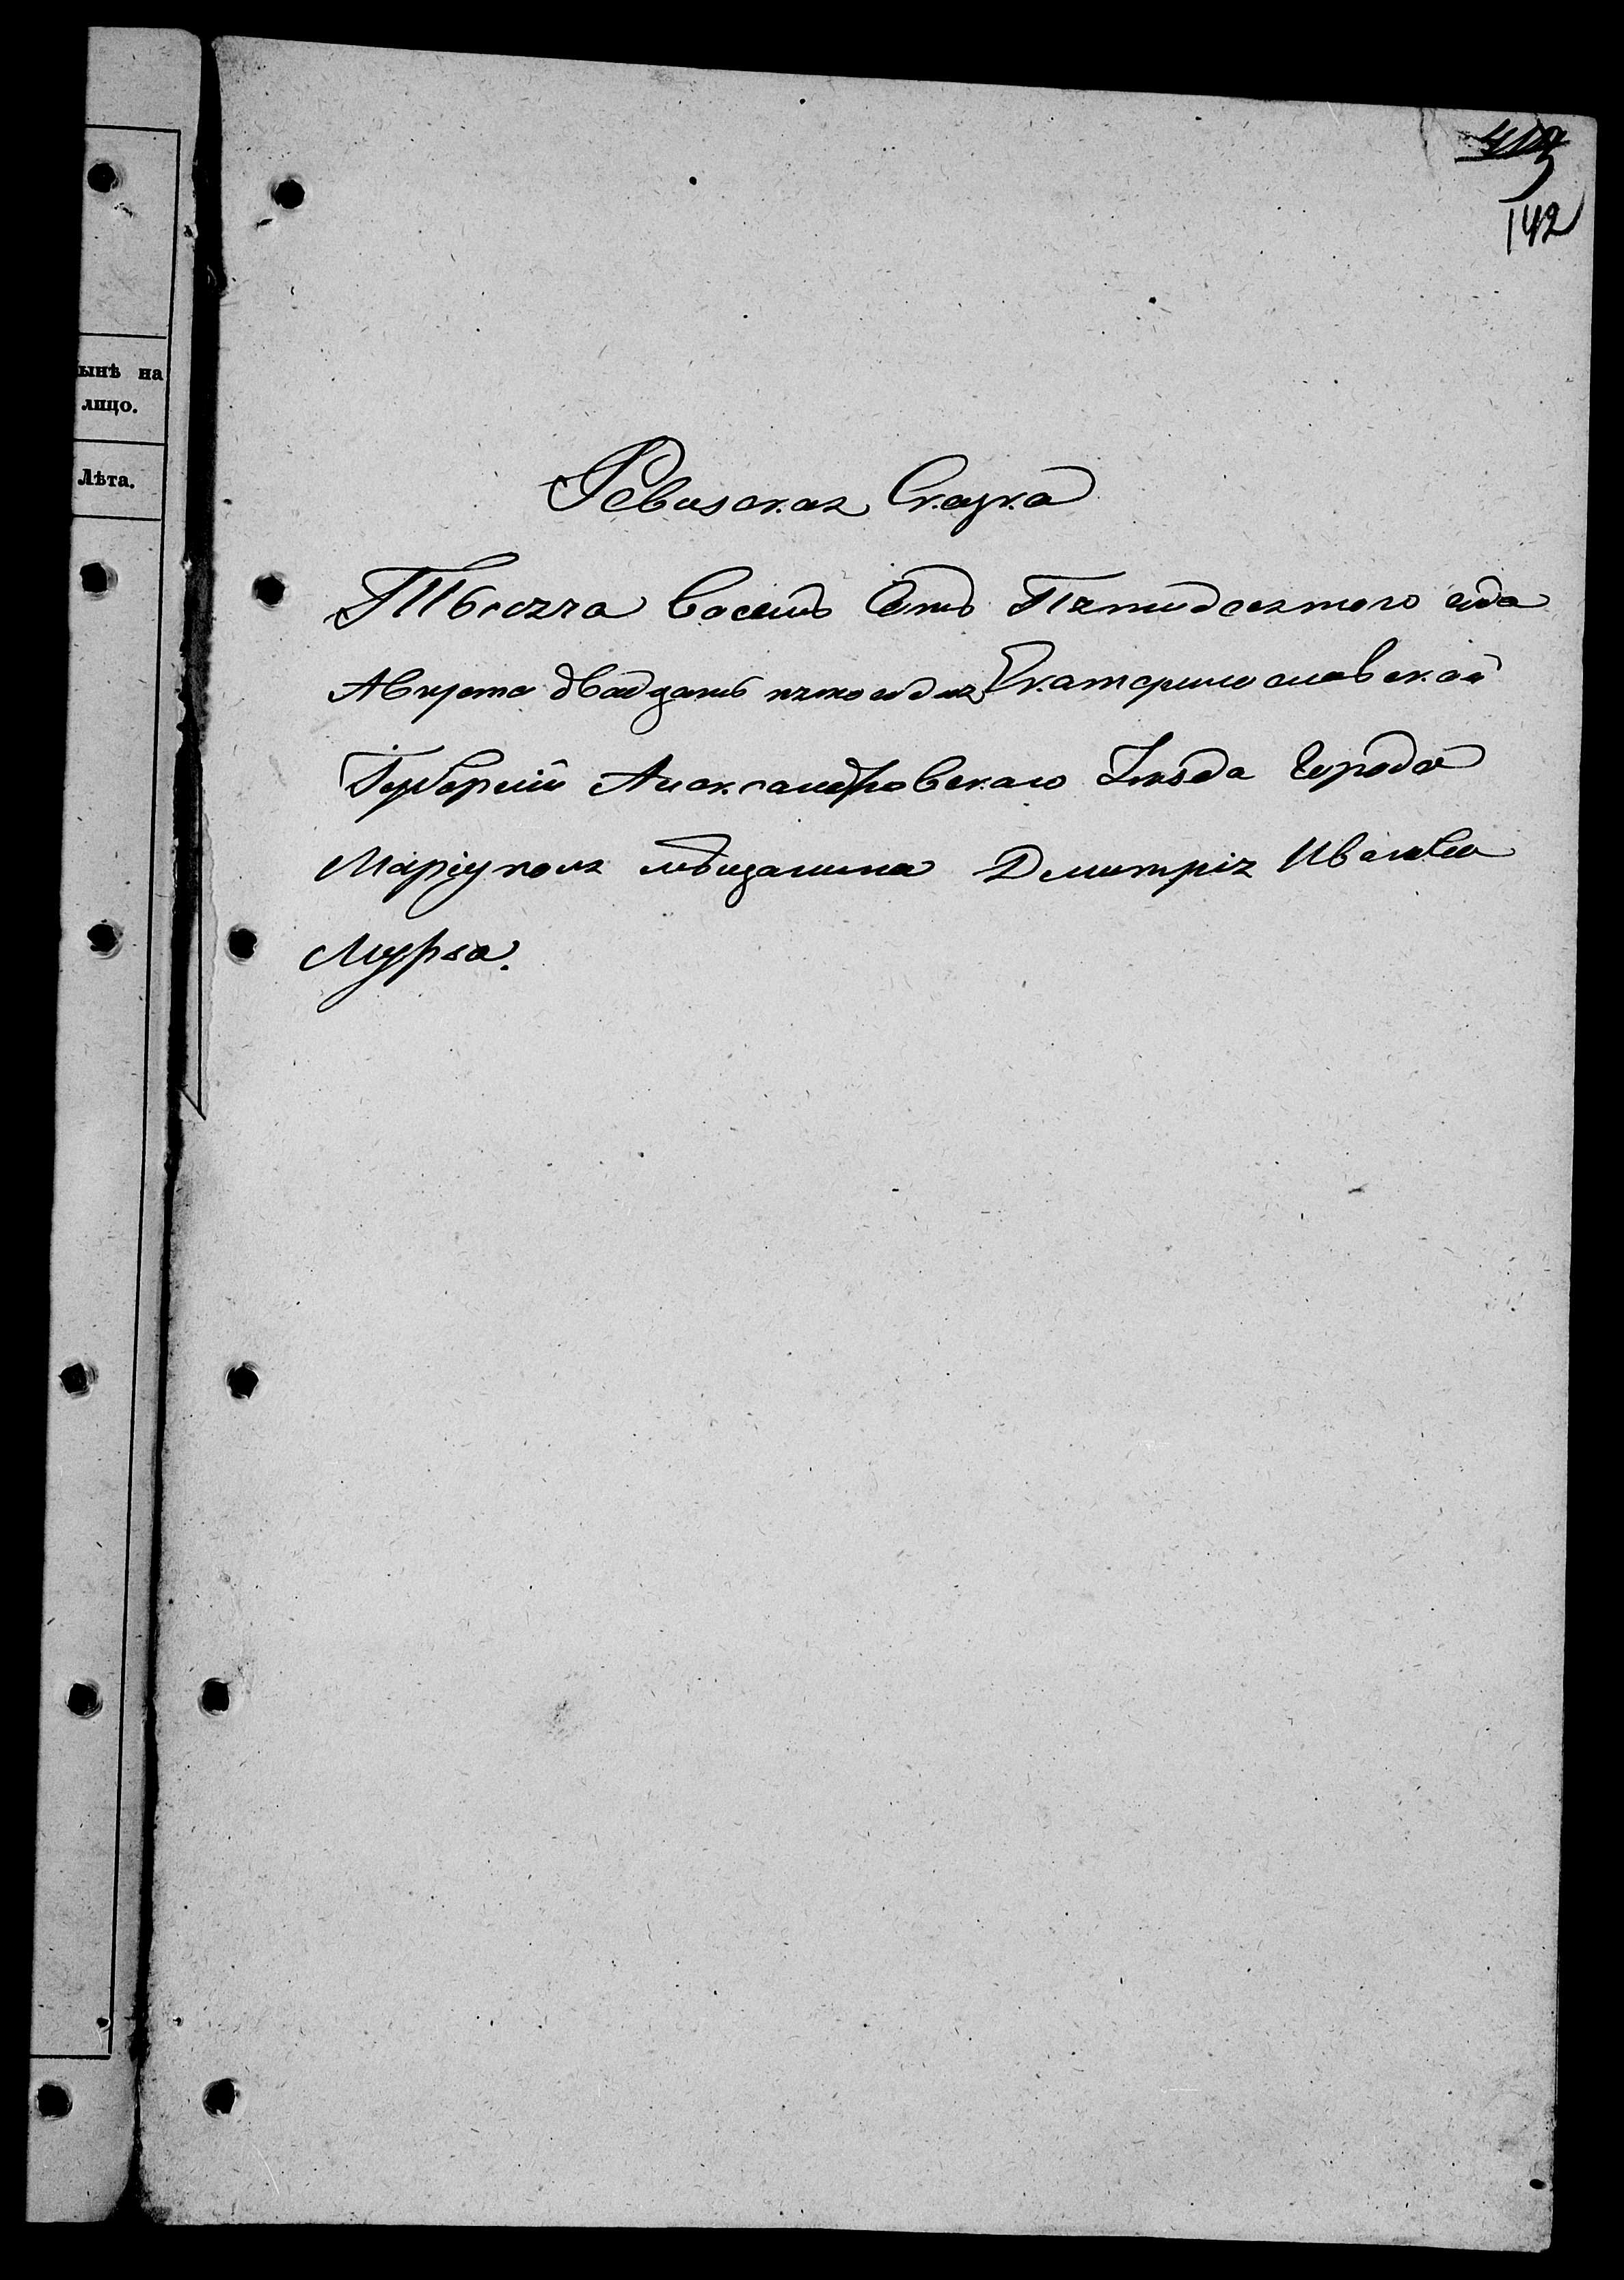 142
ынѣ на
лицо.
Лѣта.
Ревизская Сказка
Тысяча Восемь Сотъ Пятидесятого года
Августа двадцать пятого дня Екатеринославской
Губерніи Александровскаго Уѣзда Города
Маріуполя мѣщанина Дмитрія Иванова
Мурза.